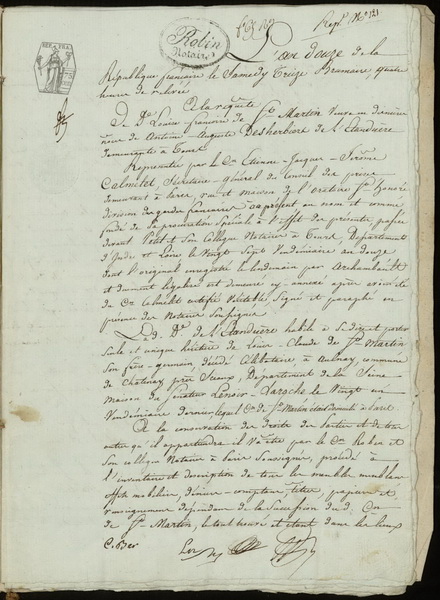 REP. FRA.
Robin
Notaire
Rep.e No. 121
L'an douze de la
République française le Samedy treize Brumaire quatre
heures de relevée
A la requête
De De. Louise françoise de St. Martin Veuve en
de Antoine Auguste Desherbiers de L'Etanduère
demeurante à Tours
Représentée par le Cn. Etienne Jacques Jérôme
Calmelet, Secrétaire général du Conseil des prises
demeurant à Paris, rue et maison de l'oratoire St. honoré
division des gardes françaises au présent au nom et comme
fondé de sa procuration Spéciale à l'effet des présentes passée
devant Petit et son Collègue Notaires à Tours, Département
d'Indre et Loire le Vingt Sept Vendémiaire an douze
dont l'original enregistré le lendemain par Archambault
et dument légalisé est demeuré cy-annexé après avoir été
du Cn. Calmelet certifié Véritable Signé et paraphé en
présence des Notaires Soussignés
La d. De. de L'Etanduère habile à se dire et porter
Seule et unique héritière de Louis Claude de St. Martin
Son frère germain, décédé Célibataire à Aulnay, commune
de Chatenay près Sceaux, Département de la Seine
maison du Senateur Lenoir Laroche le Vingt un
Vendémiaire dernier, lequel Cn. de St. Martin étoit domicilié à Paris
A la conservation des droits des parties et de tous
autres qu'il appartiendra il va être par le Cn. Robin et
Son collègue Notaires à Paris Soussignés, procédé à
l'inventaire et description de tous les meubles meublans
effets mobiliers, deniers comptans, titres, papiers et
renseignemens dépendans de la Succession du d. Cn.
de St. Martin, le tout trouvé et étant dans les lieux